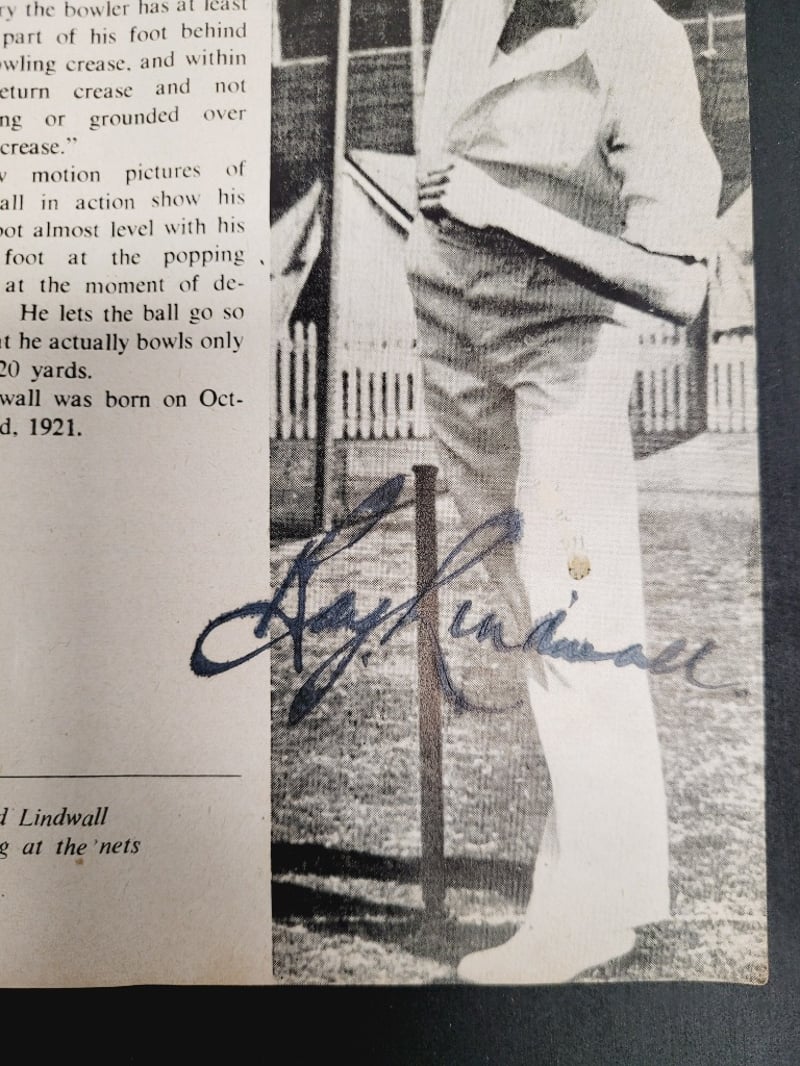 ry the bowler has at least
part of his foot behind
owling crease, and within
eturn crease and not
ng or grounded over
crease.”
w motion pictures of
all in action show his
oot almost level with his
foot at the popping
at the moment of de-
He lets the ball go so
at he actually bowls only
20 yards.
wall was born on Oct-
d, 1921.
Ray Lindwall
d Lindwall
g at the nets